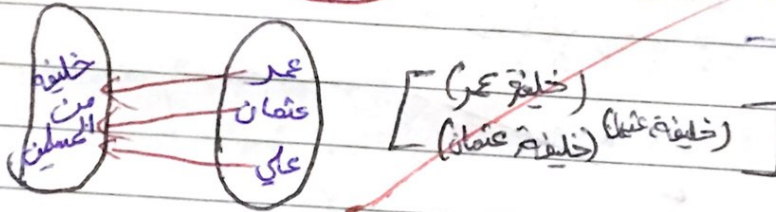 خليفة
من
المسلمين
عمر
عثمان
علي
(خليفة, عمر)
(خليفة, عثمان) (خليفة, عثمان)